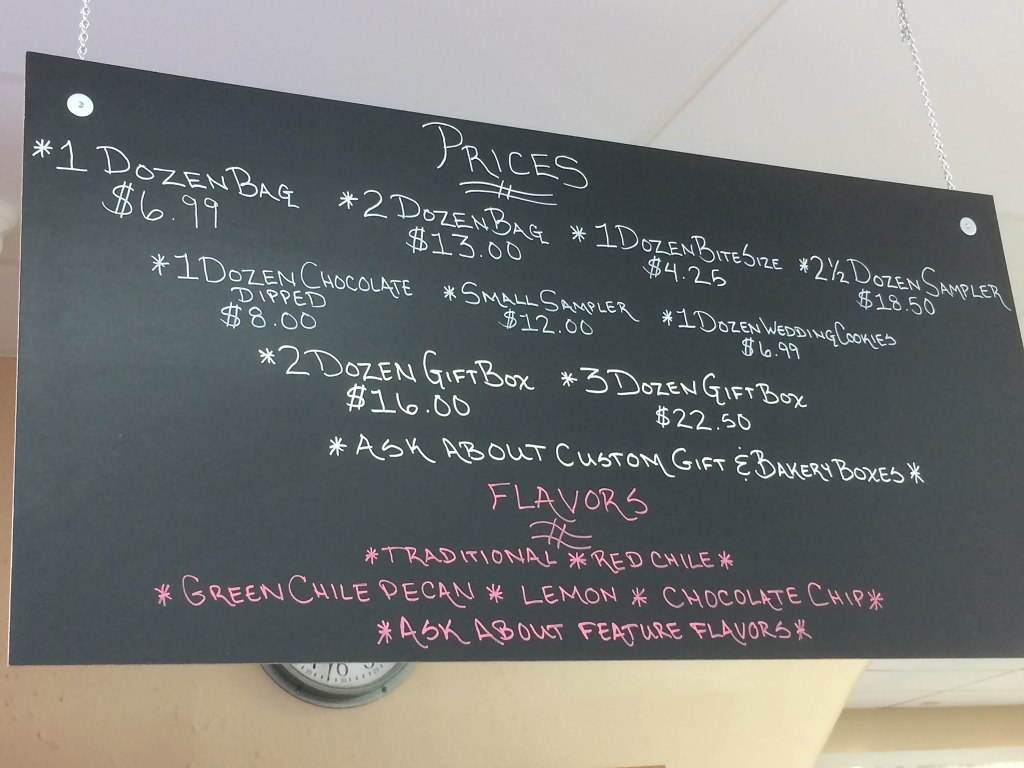 PRICES
*1 DOZEN BAG
$6.99
*2 DOZEN BAG
$13.00
*1 DOZEN BITE SIZE
$4.25
*2½ DOZEN SAMPLER
$18.50
*1 DOZEN CHOCOLATE
DIPPED
$8.00
*SMALL SAMPLER
$12.00
*1 DOZEN WEDDING COOKIES
$6.99
*2 DOZEN GIFT BOX
$16.00
*3 DOZEN GIFT BOX
$22.50
*ASK ABOUT CUSTOM GIFT & BAKERY BOXES*
FLAVORS
*TRADITIONAL *RED CHILE*
*GREEN CHILE PECAN * LEMON * CHOCOLATE CHIP*
*ASK ABOUT FEATURE FLAVORS*
7 6 5